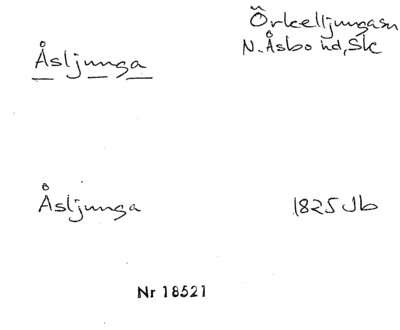 Örkelljungasn
Åsljunga
N. Åsbo hd, Sk
Åsljunga
1825 Jb
Nr 18521